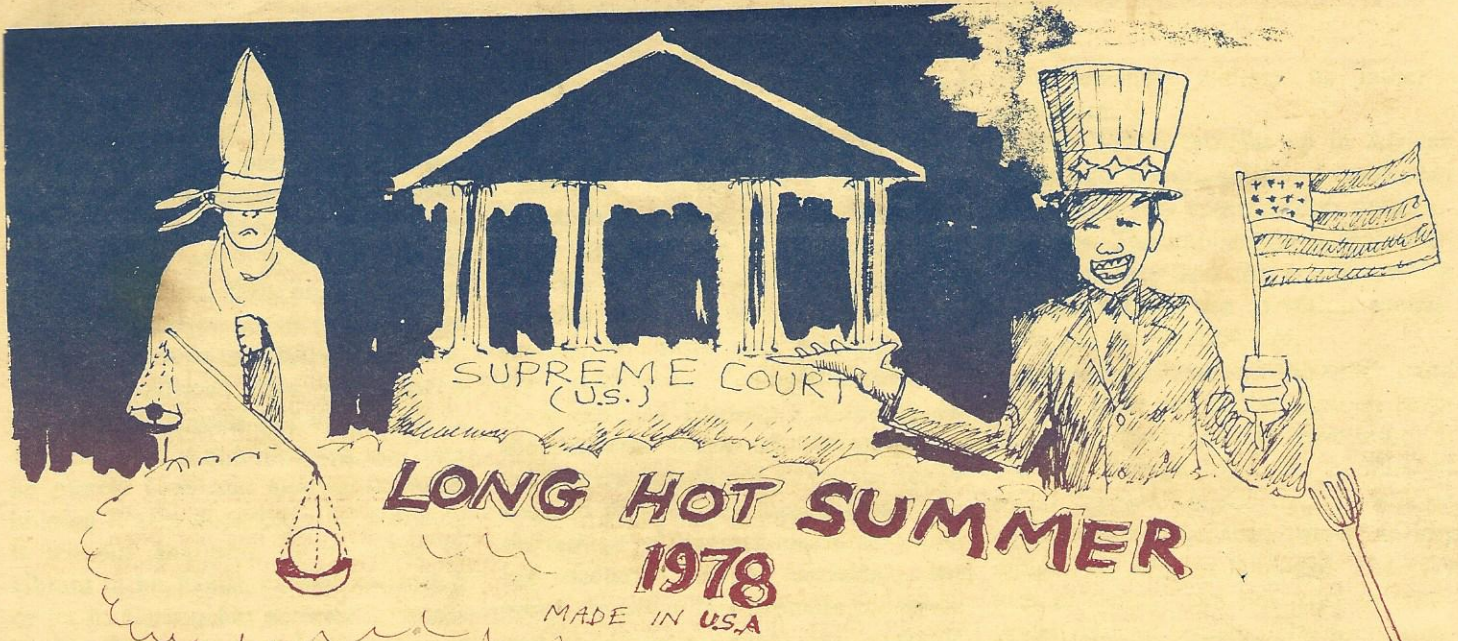 SUPREME COURT
(U.S.)
LONG HOT SUMMER
1978
MADE IN U.S.A